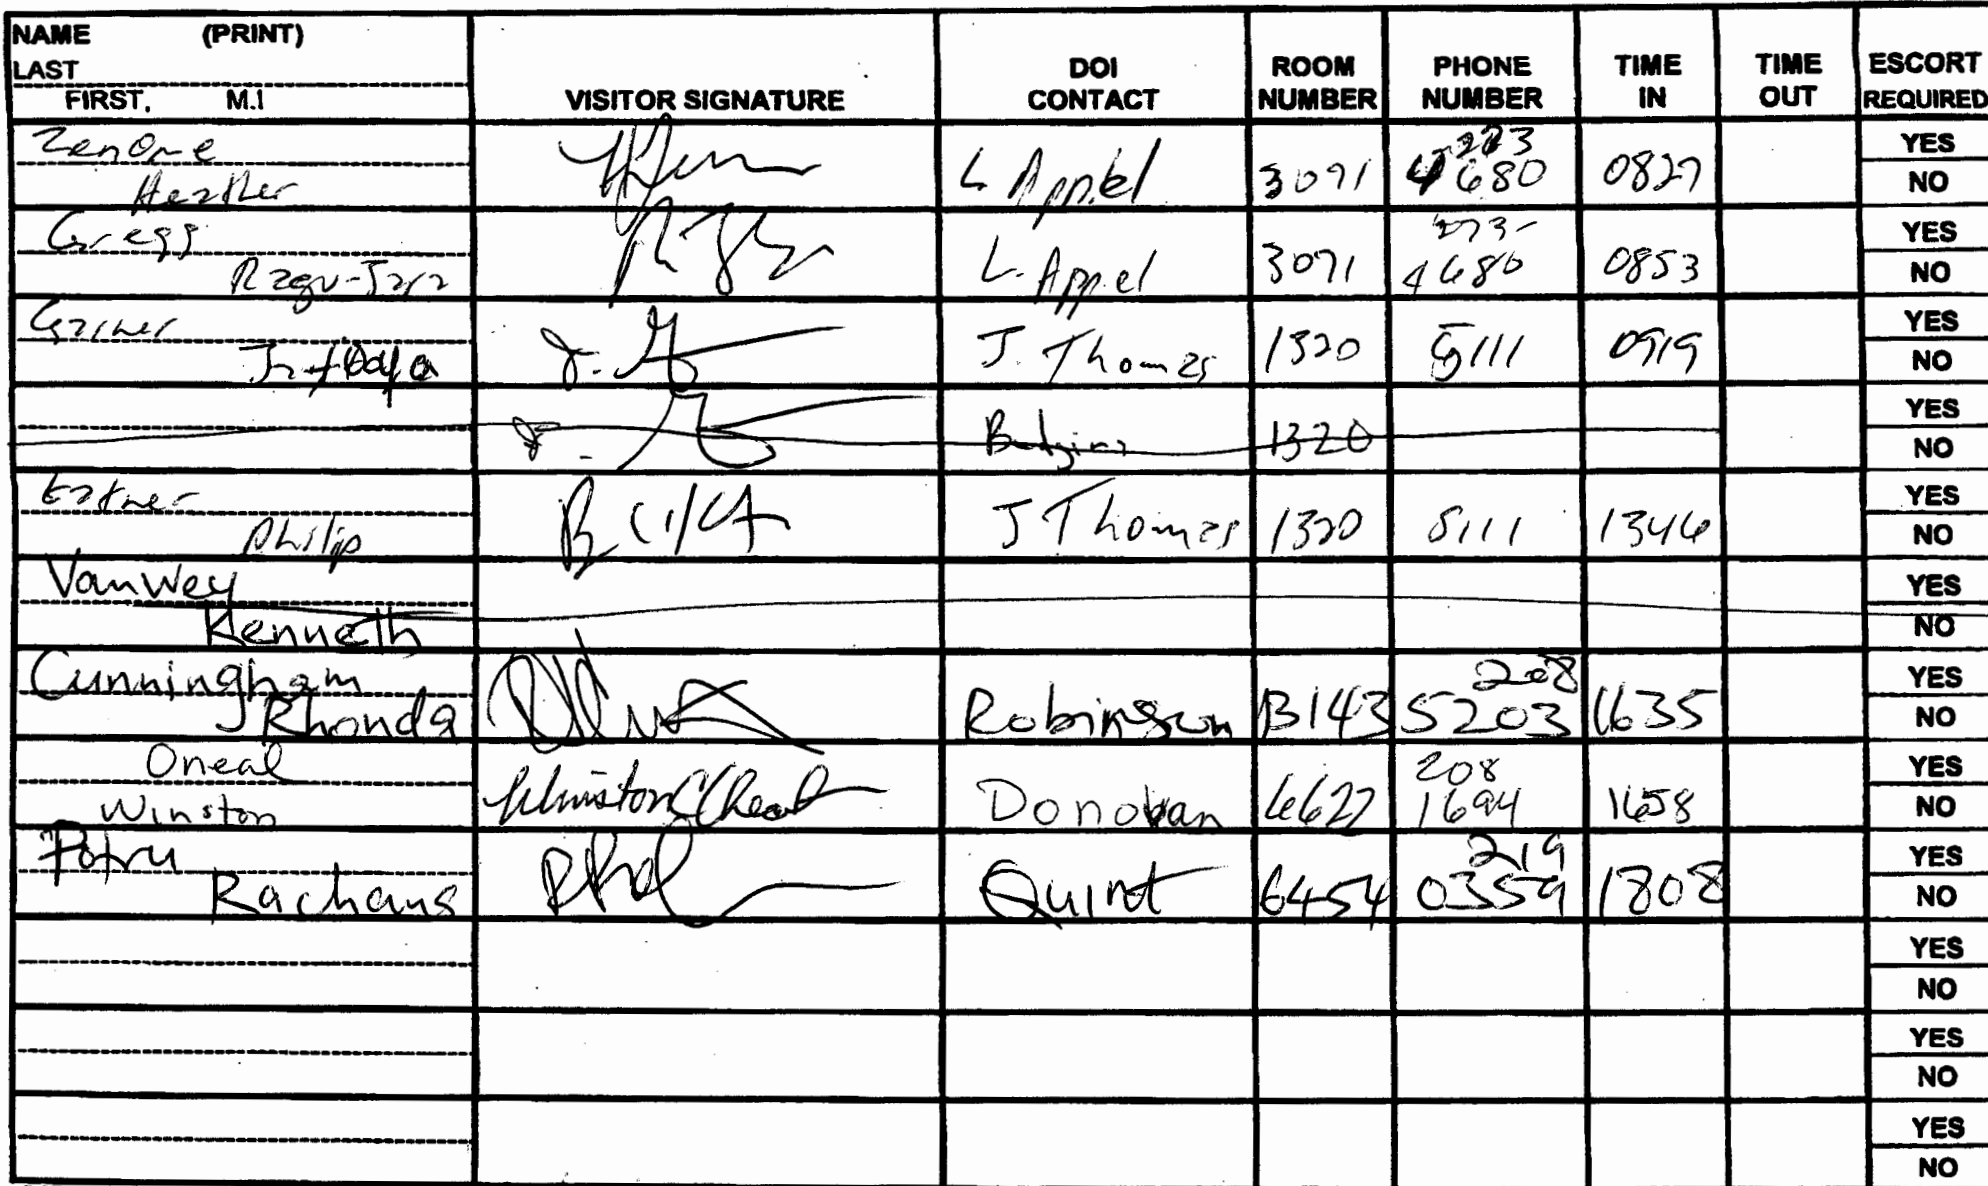 NAME (PRINT)
LAST
FIRST, M.I
VISITOR SIGNATURE
DOI CONTACT
ROOM NUMBER
PHONE NUMBER
TIME IN
TIME OUT
ESCORT REQUIRED
Zenone
Heather
L Appel 3091 273 4680 0827 YES NO
Gregg
L. Appel 3091 273- 4680 0853 YES NO
Garner
J. Thomas 1320 5111 0919 YES NO
1320 YES NO
Philip
J Thomas 1320 5111 1346 YES NO
VanWey
Kenneth
YES NO
Cunningham
Rhonda
Robinson B143 208 5203 1635 YES NO
Oneal
Winston
Winston Oneal
Donovan 6622 208 1694 1658 YES NO
Rachana
Quint 6454 219 0359 1808 YES NO
YES NO
YES NO
YES NO